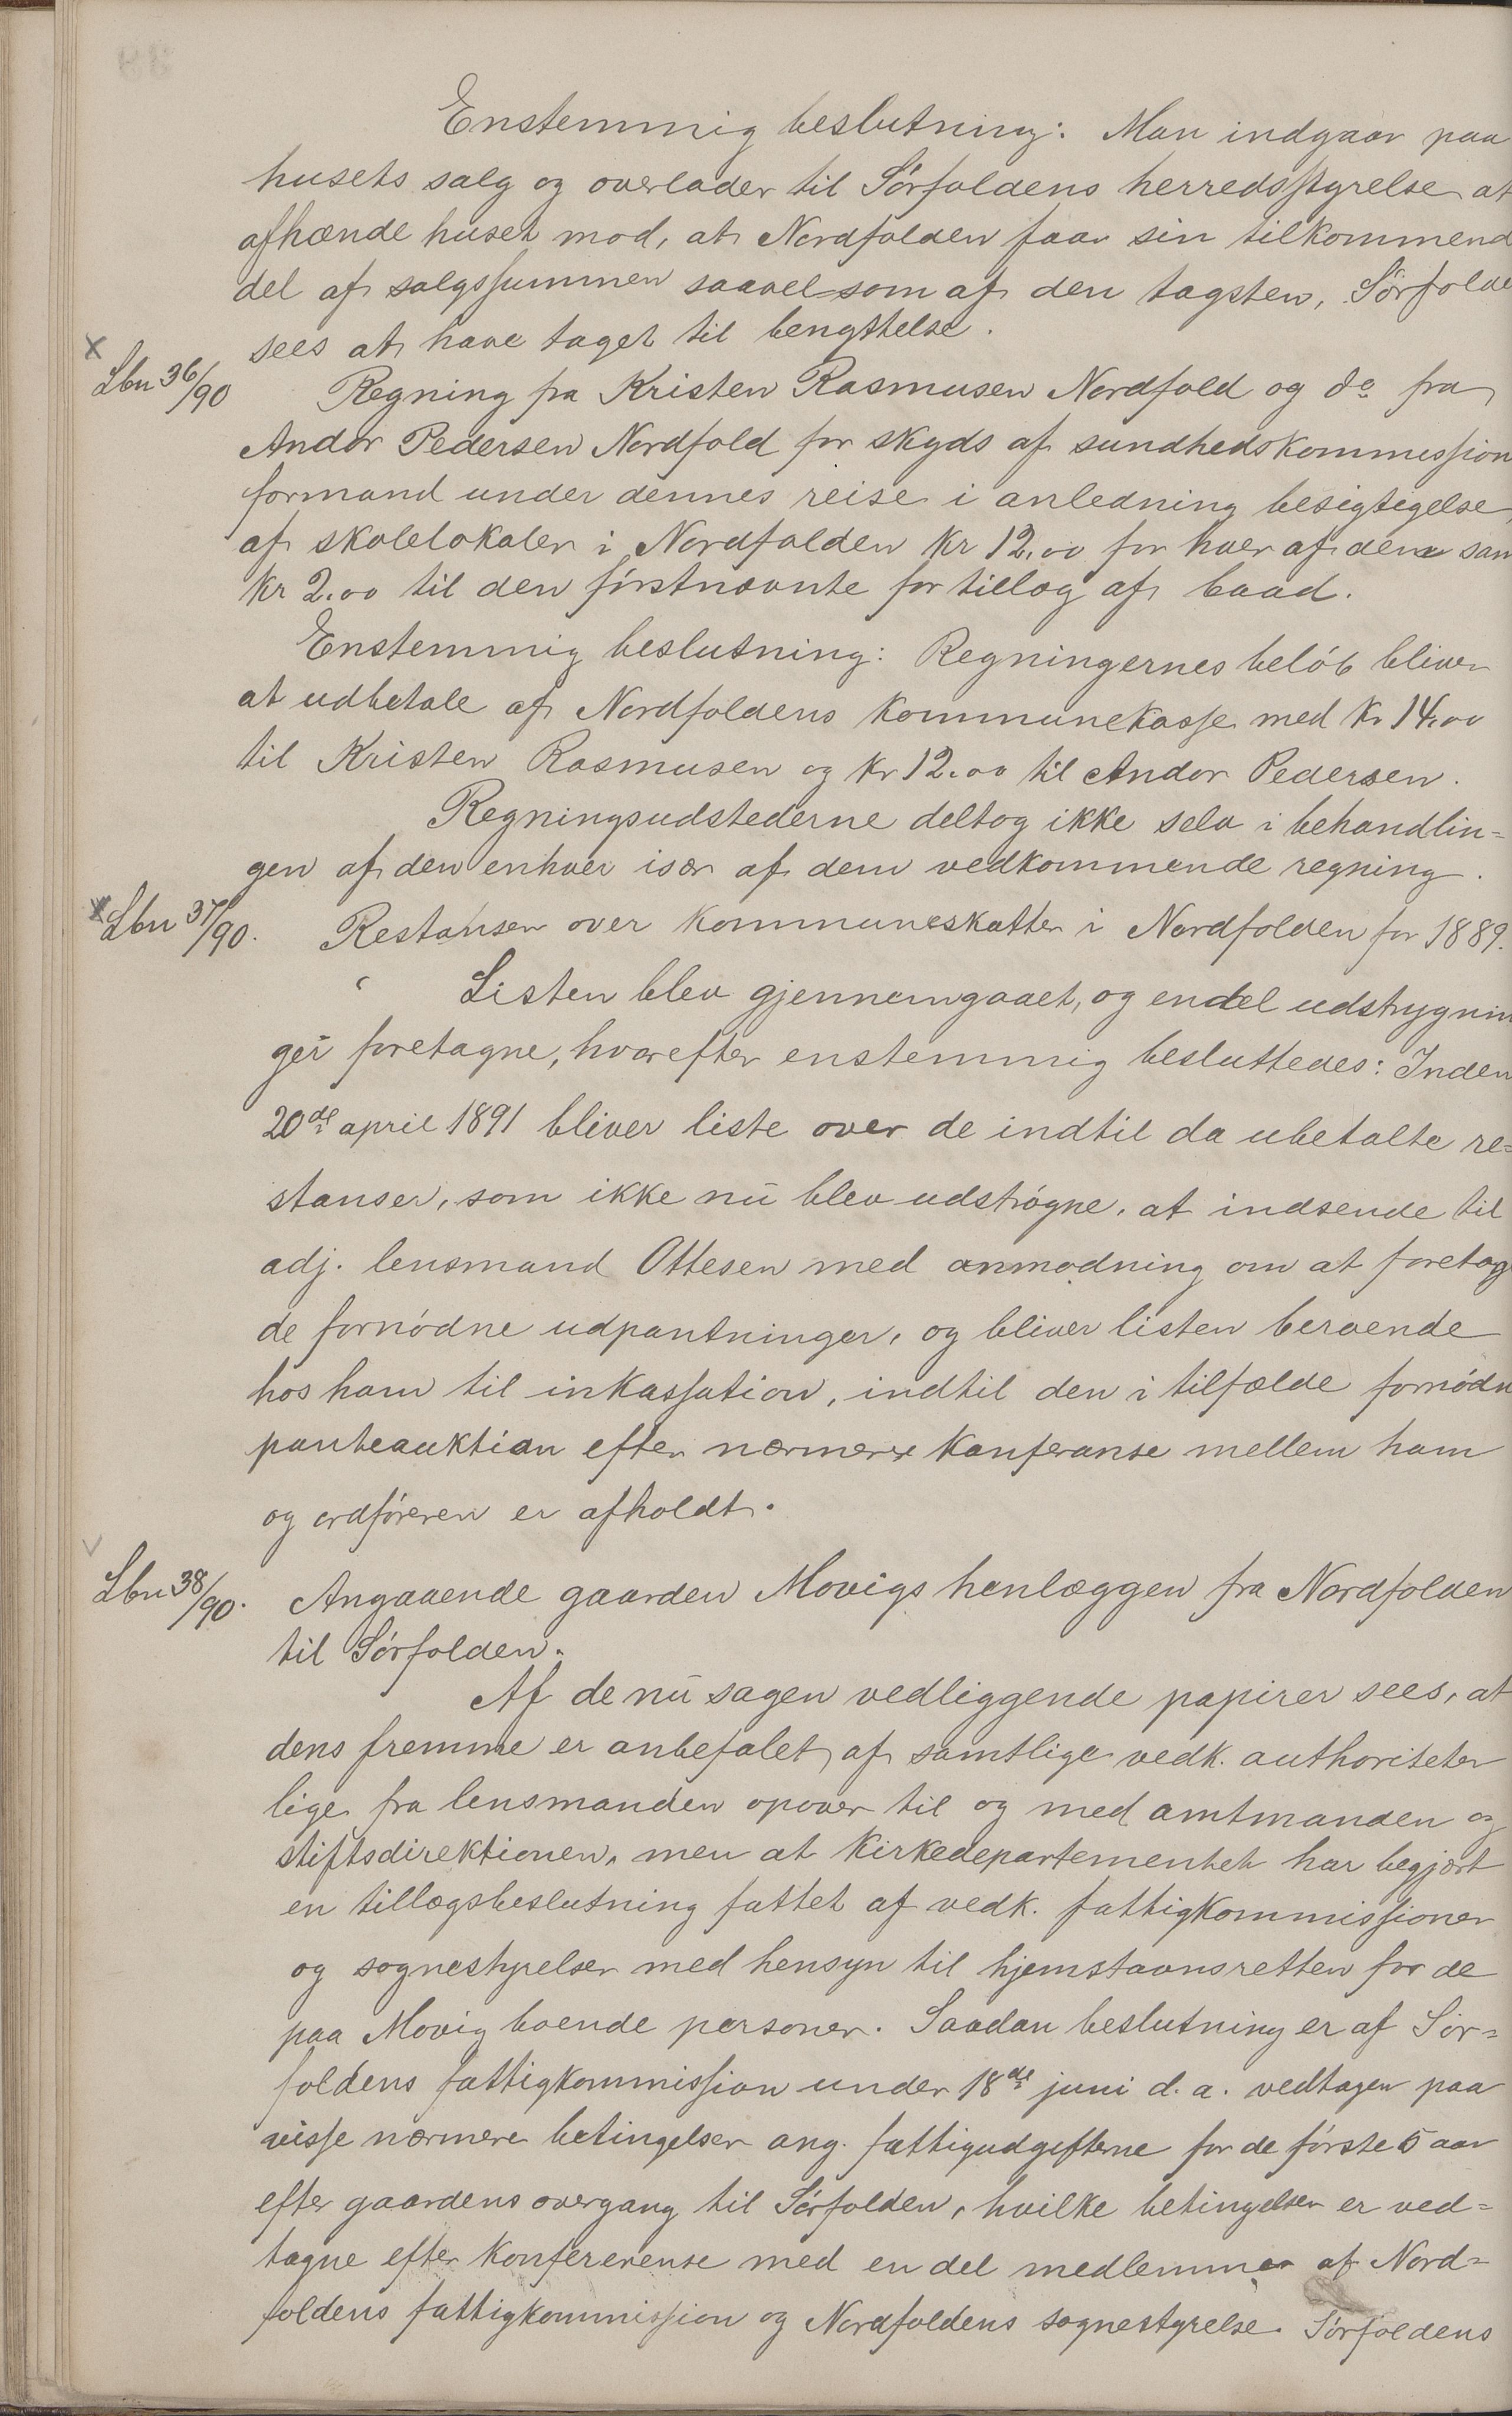 Enstemmig beslutning: Man indgaar paa
husets salg og overlader til Sörfoldens herredsstyrelse at
afhænde huset mod, at Nordfolden faar sin tilkommend
del af salgssummen saavelsom af den tagsten, Sörfolde
sees at have taget til benyttelse.
Lbn 36/90 Regning fra Kristen Rasmusen Nordfold og do fra
Andor Pedersen Nordfold for skyds af sundhedskommission
formand under dennes reise i anledning besigtigelse
af skolelokaler i Nordfolden Kr 12.00 for hver af dem sam
Kr 2.00 til den förstnævnte for tillæg af baad.
Enstemmig beslutning: Regningernes belöb bliver
at udbetale af Nordfoldens Kommunekasse med Kr 14.00
til Kristen Rasmusen og Kr 12.00 til Andor Pedersen.
Regningsudstederne deltog ikke selv i behandlin=
gen af den enhver især af dem vedkommende regning.
Lbn 37/90. Restanser over Kommuneskatter i Nordfolden for 1889.
Listen blev gjennemgaaet, og endel udstrygnin
ger foretagne, hvorefter enstemmig besluttedes: Inden
20de april 1891 bliver liste over de indtil da ubetalte re=
stanser, som ikke nu blev udströgne, at indsende til
adj. lensmand Ottesen med anmodning om at foretag
de fornödne udpantninger, og bliver listen beroende
hos ham til inkassation, indtil den i tilfælde fornödn
panteauktion efter nærmere Konferanse mellem ham
og ordföreren er afholdt.
Lbn 38/90. Angaaende gaarden Movigs henlæggen fra Nordfolden
til Sörfolden.
Af de nu sagen vedliggende papirer sees, at
dens fremme er anbefalet af samtlige vedk. authoriteter
lige fra lensmanden opover til og med amtmanden og
stiftsdirektionen, men at Kirkedepartementet har begjært
en tillægsbeslutning fattet af vedk. fattigkommissioner
og sognestyrelser med hensyn til hjemstavnsretten for de
paa Movig boende personer. Saadan beslutning er af Sör=
foldens fattigkommission under 18de juni d. a. vedtagen paa
visse nærmere betingelser ang. fattigudgifterne for de förste 5 aar
efter gaardens overgang til Sörfolden, hvilke betingelser er ved=
tagne efter Konfererense med en del medlemmer af Nord=
foldens fattigkommission og Nordfoldens sognestyrelse. Sörfoldens